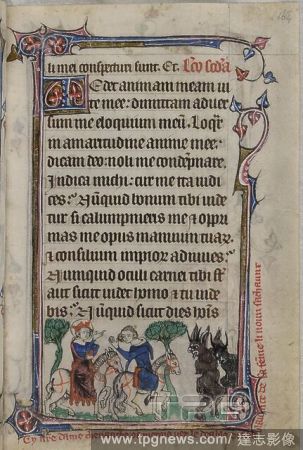 164
li mei conspectum sunt. Et. Lco scd̄a
Edet animam meam ui
te mee: dimittam aduer
sum me eloquium meū. Loqr̄
in amaritudine anime mee:
dicam deo: noli me condēpnare,
Indica michi: cur me ita iudi
ces: Nūquid bonum tibi uide
tur si calumpnieris me ⁊ oppri
mas me opus manuum tuarꝝ
⁊ consilium impiorꝝ adiuues:
Nunquid oculi carnei tibi st̄
aut sicut uidet homo ⁊ tu uide
bis: Nūquid sicut dies hōis
www.tpgnews.com / 達志影像